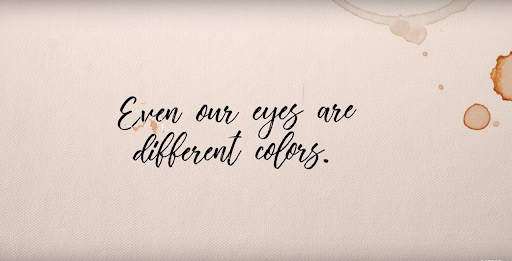 Even our eyes are
different colors.